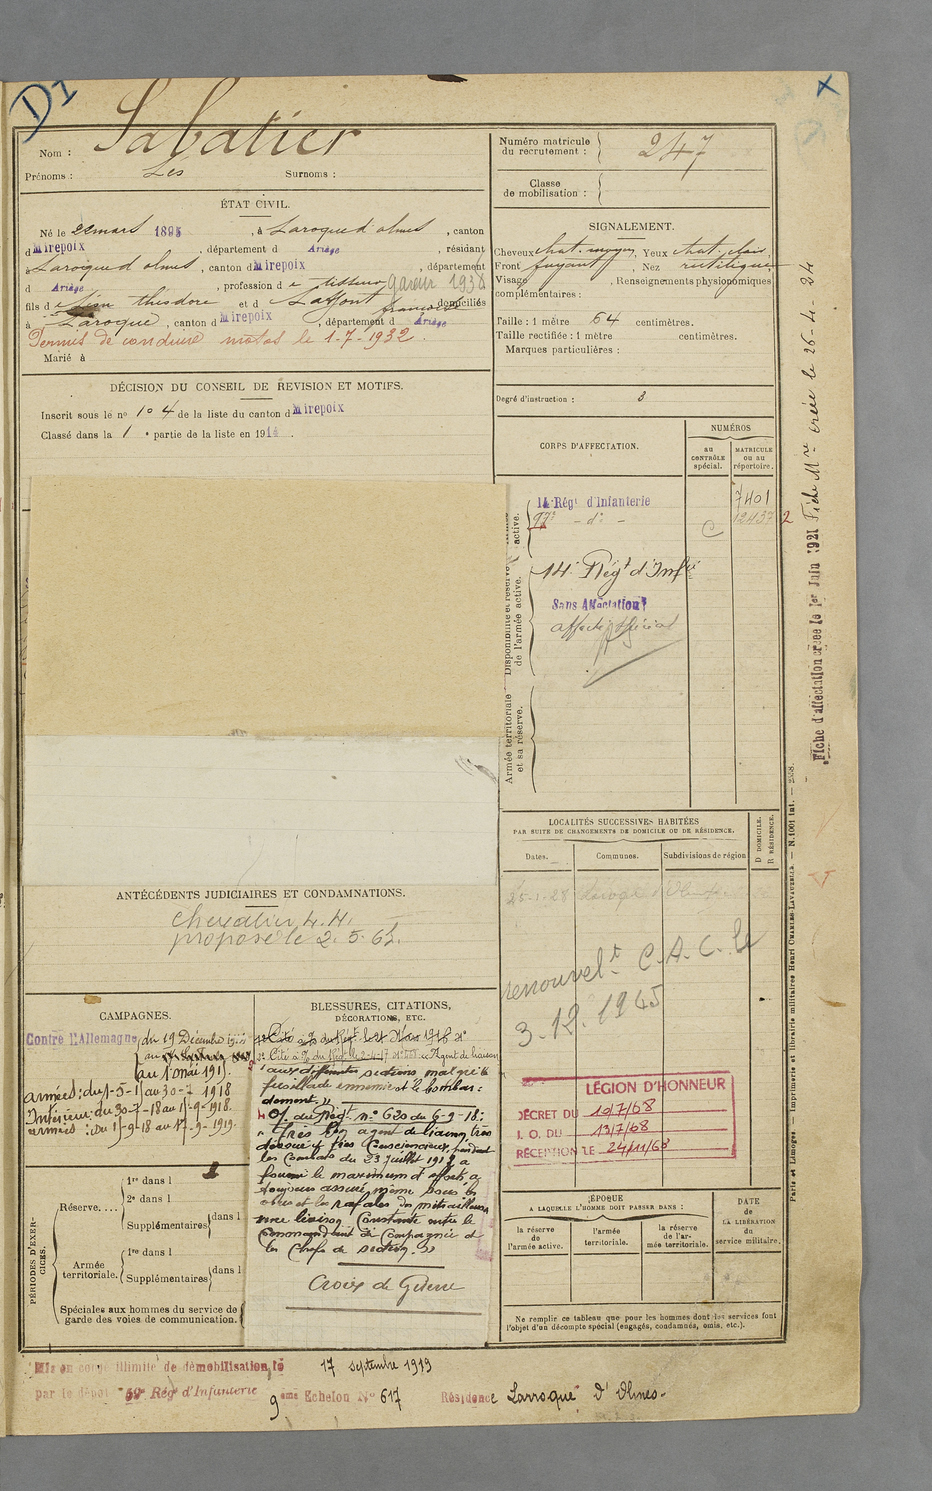 D1
Nom : Sabatier
Prénoms : Léo Surnoms :
Numéro matricule du recrutement : 247
Classe de mobilisation :
ÉTAT CIVIL.
Né le 22 mars 1895, à Laroque d'olmes, canton
d Mirepoix, département d Ariège, résidant
à Laroque d'olmes, canton d Mirepoix, département
d Ariège, profession d e tisseur gareur 1938
fils d e Léon théodore et d Laffont françoise domiciliés
à Laroque, canton d Mirepoix, département d Ariège
Permis de conduire motos le 1-7-1932.
Marié à
SIGNALEMENT.
Cheveux chat. moyen, Yeux chat. clair
Front fuyant, Nez rectiligne
Visage , Renseignements physionomiques
complémentaires :
Taille : 1 mètre 64 centimètres.
Taille rectifiée : 1 mètre centimètres.
Marques particulières :
Degré d'instruction : 3
DÉCISION DU CONSEIL DE REVISION ET MOTIFS.
Inscrit sous le nº 104 de la liste du canton d Mirepoix
Classé dans la 1e partie de la liste en 1914.
CORPS D'AFFECTATION.
NUMÉROS
au CONTRÔLE spécial.
MATRICULE ou au répertoire.
14 Régt d'Infanterie 7401
- do - C 12437 2
14e Régt d'Infie
Sans Affectation
affecté spécial
Disponibilité et réserve de l'armée active.
Armée territoriale et sa réserve.
Fiche d'affectation créée le 1er Juin 1921 Fiche Mre créée le 26-4-34
LOCALITÉS SUCCESSIVES HABITÉES
PAR SUITE DE CHANGEMENTS DE DOMICILE OU DE RÉSIDENCE.
Dates. Communes. Subdivisions de région
D DOMICILE.
R RÉSIDENCE.
25-1-28
renouvelt C.A.C. le
3.12.1945
ANTÉCÉDENTS JUDICIAIRES ET CONDAMNATIONS.
Chevalier L.H.
proposé le 2.5.62.
CAMPAGNES.
Contre l'Allemagne du 19 Décembre 1914
au 1 mai 1917.
armées : du 1-5-1 au 30-7 1918
Intérieur : du 30-7-18 au 1-9-1918.
armées : du 1-9-18 au 17-9-1919.
BLESSURES, CITATIONS,
DÉCORATIONS, ETC.
aux différentes sections malgré la
fusillade ennemie et le bombar-
dement. »
O/ du Régt nº 620 du 6-9-18 :
« très bon agent de liaison très
dévoué et très consciencieux, pendant
les combats du 23 juillet 1918 a
fourni le maximum d'efforts, a
toujours assuré, même sous les
obus et les rafales des mitrailleuses
une liaison constante entre le
Commandant de Compagnie et
les Chefs de section. »
Croix de Guerre
LÉGION D'HONNEUR
DÉCRET DU 10/7/68
J. O. DU 13/7/68
RÉCEPTION LE 24/11/68
PÉRIODES D'EXERCICES.
Réserve....
1re dans l
2e dans l
Supplémentaires dans l
Armée territoriale.
1re dans l
Supplémentaires dans l
Spéciales aux hommes du service de
garde des voies de communication.
ÉPOQUE
A LAQUELLE L'HOMME DOIT PASSER DANS :
la réserve de l'armée active.
l'armée territoriale.
la réserve de l'armée territoriale.
DATE de LA LIBÉRATION du service militaire.
Ne remplir ce tableau que pour les hommes dont les services font
l'objet d'un décompte spécial (engagés, condamnés, omis, etc.).
Paris et Limoges. — Imprimerie et librairie militaires Henri CHARLES-LAVAUZELLE. — N. 1001 int. — 2558.
Mis en congé illimité de démobilisation le 17 septembre 1919
par le dépôt 59e Régt d'Infanterie
9eme Echelon Nº 617 Résidence Larroque d'Olmes-